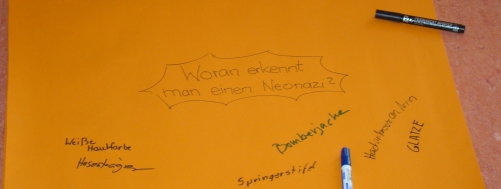 Woran erkennt
man einen Neonazi?
Weiße
Hautfarbe
Hosenträger
Bomberjacke
Springerstifel
GLATZE